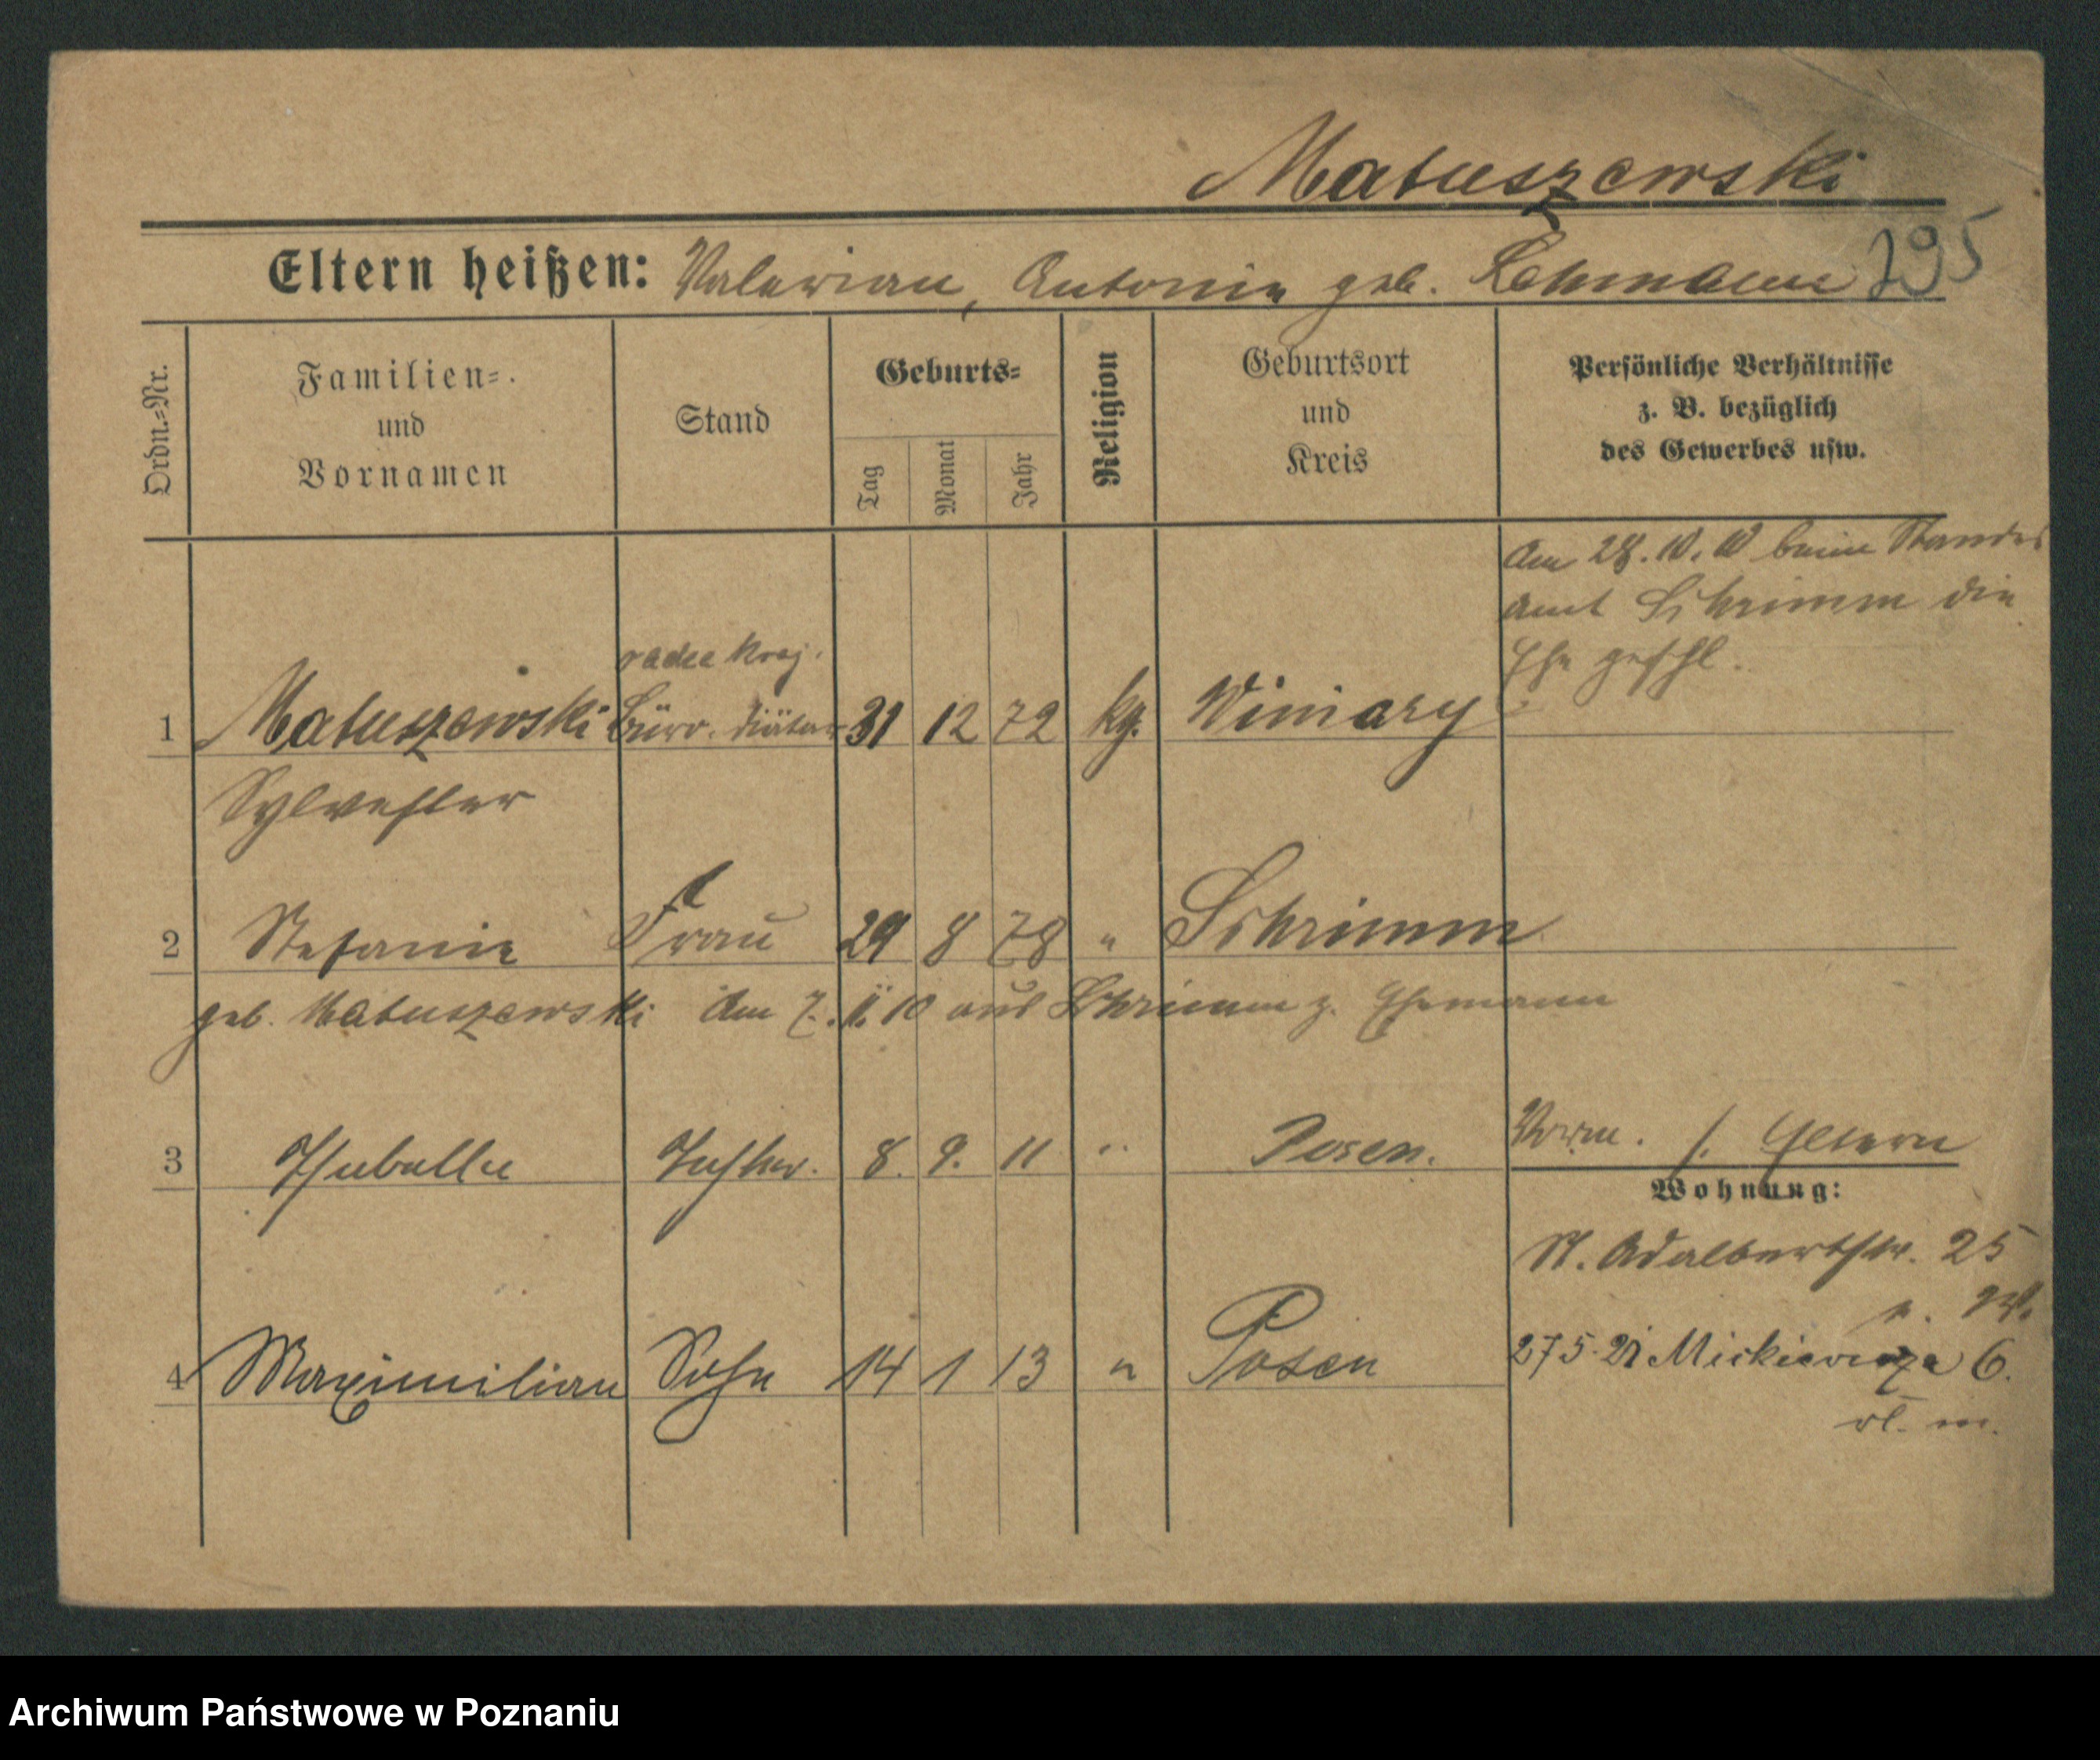 Matuszewski
Eltern heißen: Valerian, Antonie geb. Lehmann 295
Ordn.=Nr.
Familien=
und
Vornamen
Stand
Geburts=
Tag
Monat
Jahr
Religion
Geburtsort
und
Kreis
Persönliche Verhältnisse
z. B. bezüglich
des Gewerbes usw.
Am 28. 10. 10 beim Standes
amt Schrimm die
Ehe geschl.
radca kraj.
1 Matuszewski Büro. Diätar 31 12 72 kg. Winiary
Sylvester
2 Stefanie Frau 29 8 78 " Schrimm
geb. Matuszewski Am 7. 11. 10 aus Schrimm z. Ehemann
3 Isabella Tochter. 8. 9. 11 " Posen. Verm. s. Eltern
Wohnung:
St. Adalbertstr. 25
4 Maximilian Sohn 14 1 13 " Posen
27 5. 21 Mickiewicza 6.
wł. m.
Archiwum Państwowe w Poznaniu